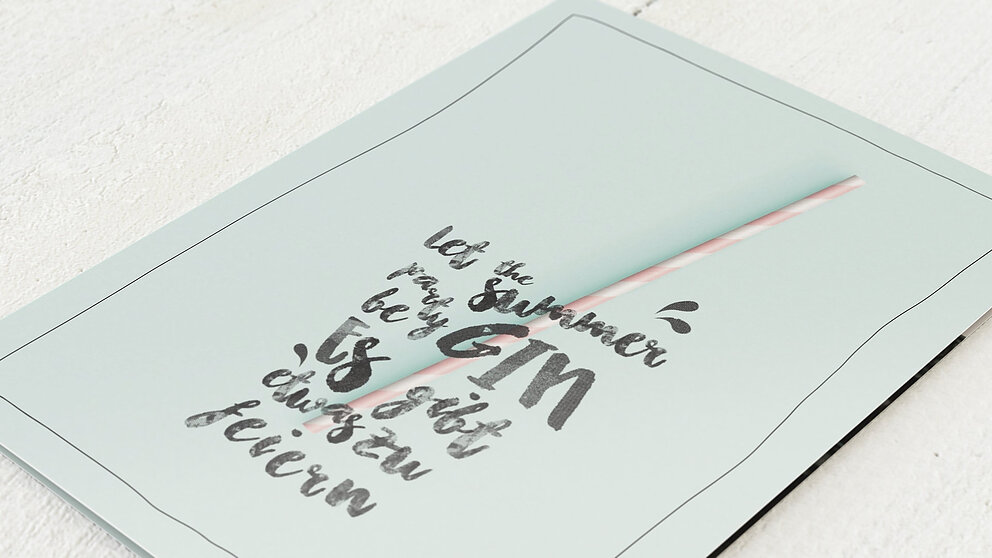 let the summer
party be GIN
Es gibt
etwas zu
feiern